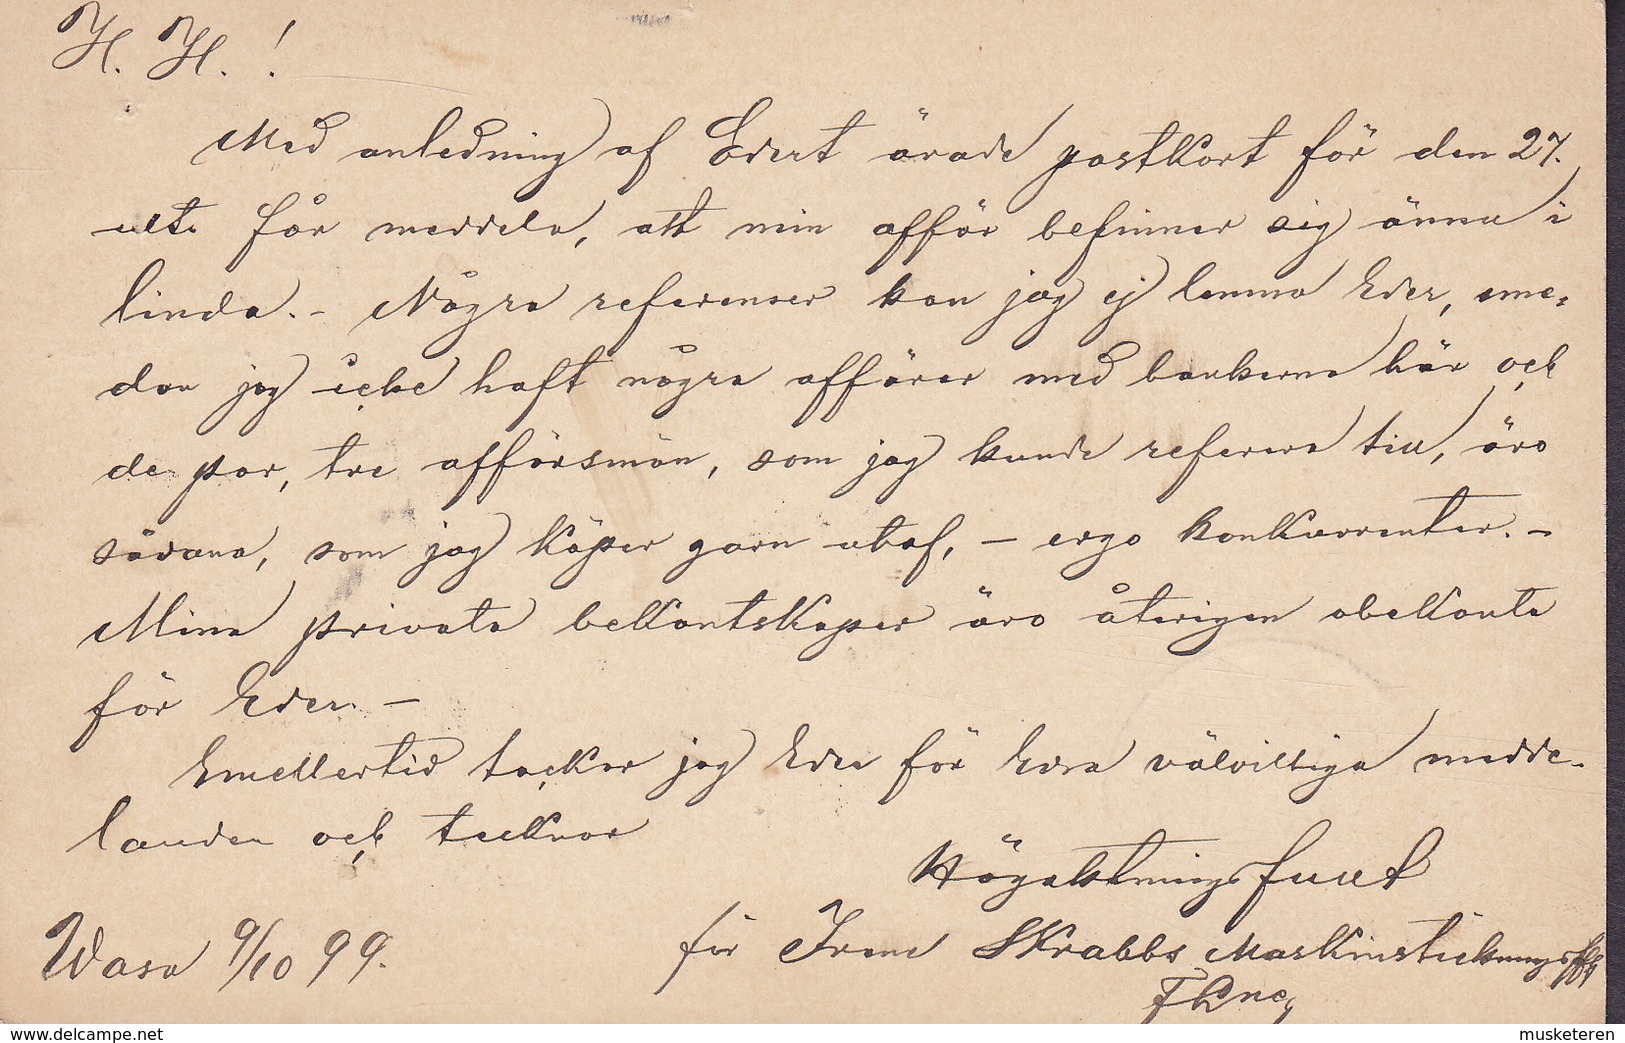 H. H. !
Med anledning af Edert ärade postkort för den 27.
ult. får meddela, att min affär befinner sig ännu i
linda. - Några referenser kan jag ej lemna Eder, eme-
dan jag icke haft några affärer med bankerna här och
de par, tre affärsmän, som jag kunde referera till, äro
sådana, som jag köper garn utaf, - ergo konkurrenter. -
Mina privata bekantskaper äro återigen obekanta
för Eder. -
Emellertid tackar jag Eder för Edra välvilliga medde-
landen och tecknar
Högaktningsfullt
för Irene Skrabbs Maskinstickningsaff
Wasa 9/10 99.
delcampe.net
musketeren